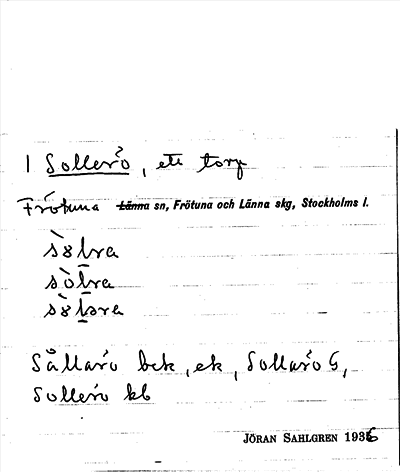 1 Sollerö, ett torp
Frötuna Länna sn, Frötuna och Länna skg, Stockholms l.
Sållarö bck, ek, Sollarö G,
Sollerö kb
JÖRAN SAHLGREN 1936